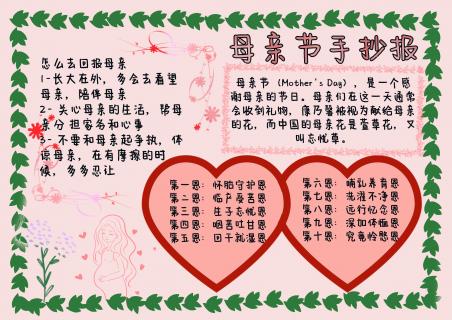 母亲节手抄报
怎么去回报母亲
1-长大在外，多会去看望
母亲，陪伴母亲
2-关心母亲的生活，帮母
亲分担家务和心事
3-不要和母亲起争执，体
谅母亲，在有摩擦的时
候，多多忍让
母亲节（Mother's Day），是一个感
谢母亲的节日。母亲们在这一天通常
会收到礼物，康乃馨被视为献给母亲
的花，而中国的母亲花是萱草花，又
叫忘忧草。
第一恩：怀胎守护恩
第二恩：临产受苦恩
第三恩：生子忘忧恩
第四恩：咽苦吐甘恩
第五恩：回干就湿恩
第六恩：哺乳养育恩
第七恩：洗濯不净恩
第八恩：远行忆念恩
第九恩：深加体恤恩
第十恩：究竟怜愍恩